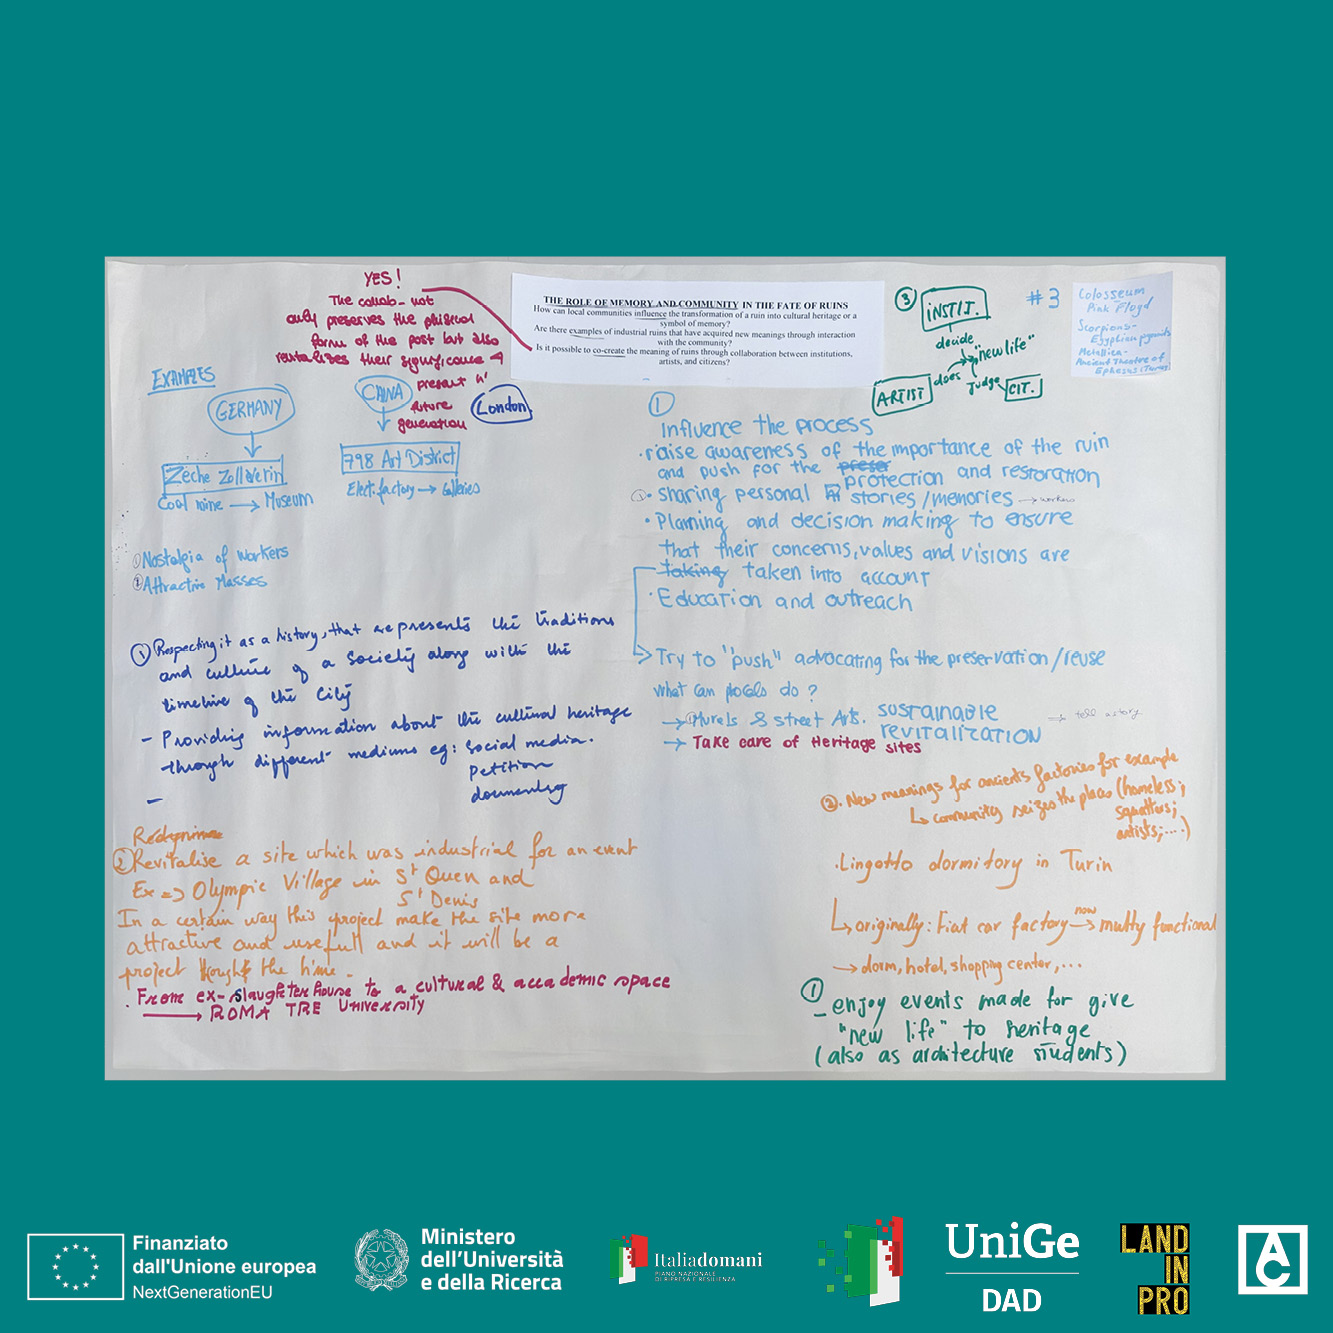 YES!
The collab- not
only preserves the phisical
form of the past but also
revitalises their significance
present n'
future
generation
THE ROLE OF MEMORY AND COMMUNITY IN THE FATE OF RUINS
How can local communities influence the transformation of a ruin into cultural heritage or a
symbol of memory?
Are there examples of industrial ruins that have acquired new meanings through interaction
with the community?
Is it possible to co-create the meaning of ruins through collaboration between institutions,
artists, and citizens?
3
INSTIT.
decide
"new life"
ARTIST does judge CIT.
#3
Colosseum
Pink Floyd
Scorpions-
Egyptian pyramids
Metallica-
Ancient Theatre of
Ephesus
EXAMPLES
GERMANY
Zeche Zollverein
Coal mine → Museum
CHINA
798 Art District
Elect. factory → Galleries
London
① Nostalgia of workers
② Attractive Masses
① Respecting it as a history, that represents the traditions
and culture of a society along with the
timeline of the City
- Providing information about the cultural heritage
through different mediums eg: social media.
Petition
documentry
-
② Revitalise a site which was industrial for an event
Ex => Olympic Village in St Ouen and
St Denis
In a certain way this project make the site more
attractive and usefull and it will be a
project the time.
. From ex-slaughterhouse to a cultural & accademic space
→ ROMA TRE UNIVERSITY
1
influence the process
· raise awareness of the importance of the ruin
and push for the protection and restoration
· sharing personal stories/memories → workers
· Planning and decision making to ensure
that their concerns, values and visions are
taking taken into account
· Education and outreach
→ Try to "push" advocating for the preservation/reuse
what can locals do?
→ Murals & street Arts. SUSTAINABLE
REVITALIZATION
→ Take care of Heritage sites
②. New meanings for ancients factories for example
↳ community seizes the places (homeless;
squatters;
artists;....)
· Lingotto dormitory in Turin
↳ originally: Fiat car factory now → multy functional
→ dorm, hotel, shopping center,...
①
- enjoy events made for give
"new life" to heritage
(also as architecture students)
Finanziato
dall'Unione europea
NextGenerationEU
Ministero
dell'Università
e della Ricerca
Italiadomani
PIANO NAZIONALE
DI RIPRESA E RESILIENZA
UniGe
DAD
LAND
IN
PRO
AC